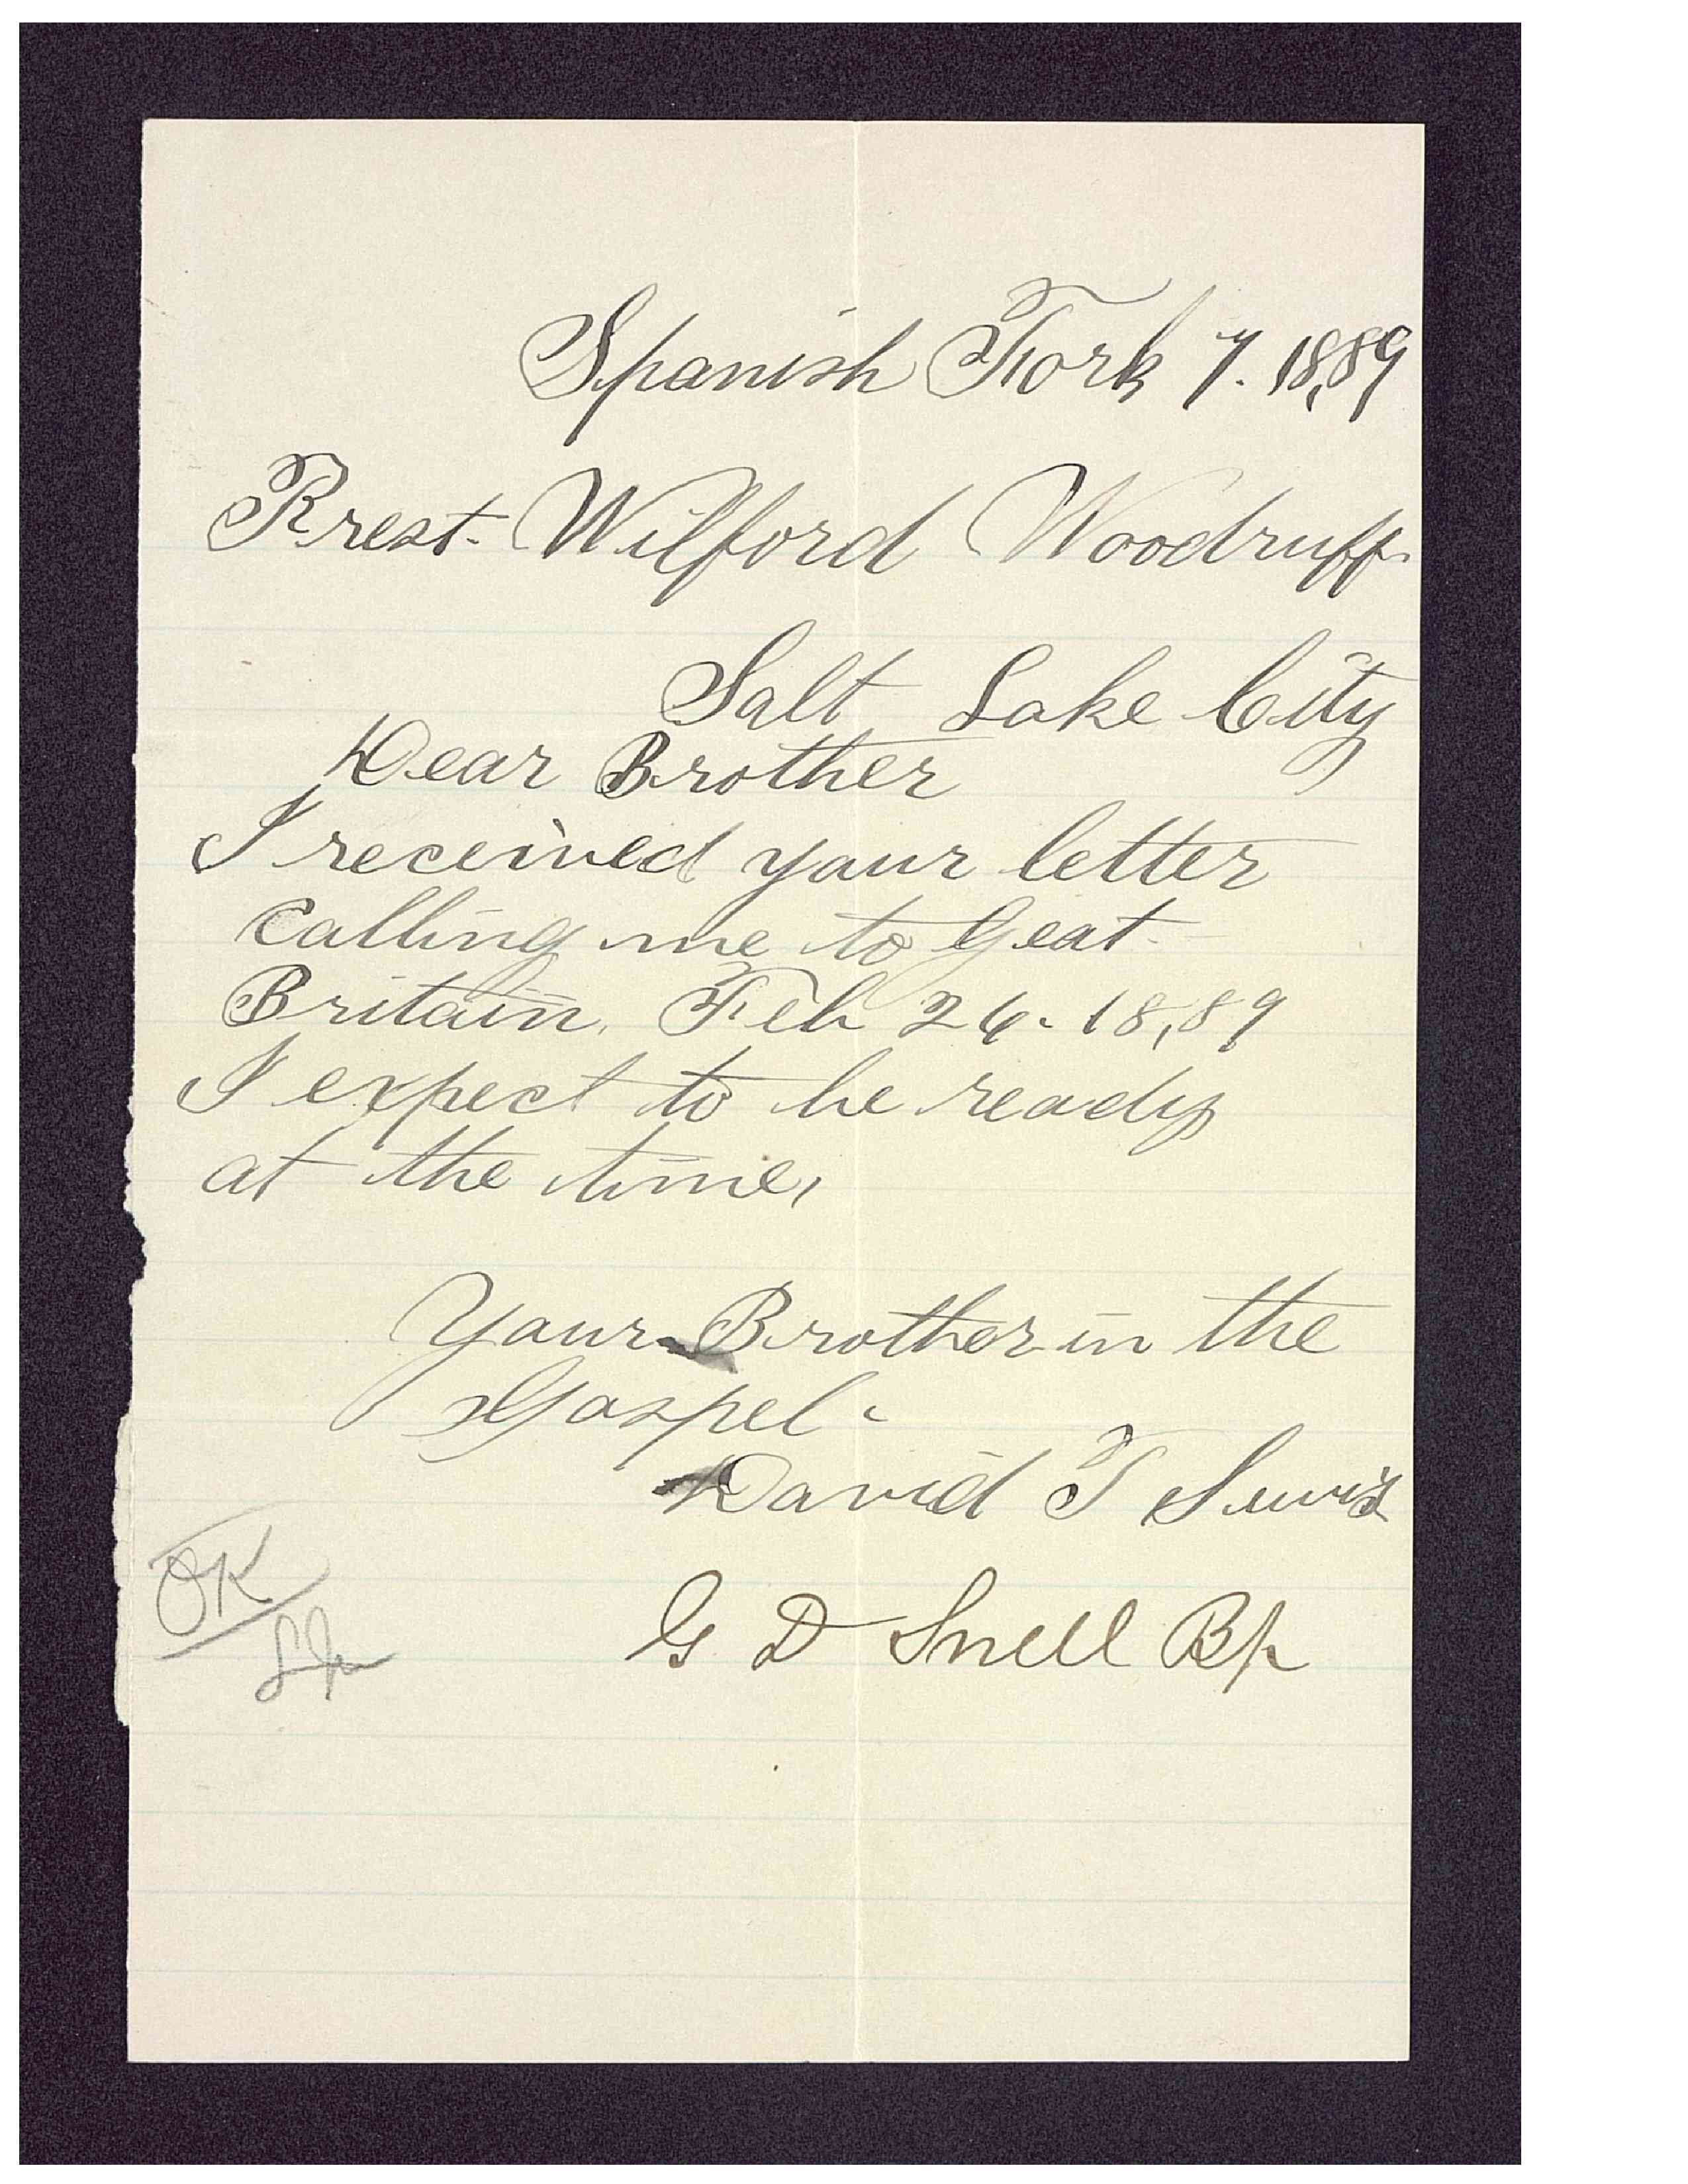 Spanish Fork 7. 18,89
Prest. Wilford Woodruff
Salt Lake City
Dear Brother
I received your letter
calling me to Geat
Britain. Feb 24. 18,89
I expect to be ready
at the time,
Your Brother in the
Gospel.
David T Lewis
G D Snell Bp
OK